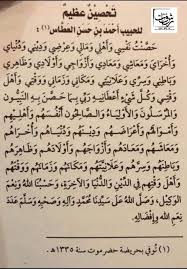 تحصين عظيم
للحبيب أحمد بن حسن العطاس (١) :
حَصَّنْتُ نَفْسِي وَأَهْلِي وَمَالِي وَعِرْضِي وَدِينِي وَدُنْيَايَ
وَأُخْرَايَ وَمَعَاشِي وَمَعَادِي وَأَزْوَاجِي وَأَوْلَادِي وَظَاهِرِي
وَبَاطِنِي وَسِرِّي وَعَلَانِيَتِي وَمَكَانِي وَزَمَانِي وَأَهْلَ
وَقْتِي وَكُلَّ شَيْءٍ أَعْطَانِيهِ رَبِّي بِمَا حَصَّنَ بِهِ النَّبِيُّونَ
وَالْمُرْسَلُونَ وَالْأَوْلِيَاءُ وَالصَّالِحُونَ أَنْفُسَهُمْ وَأَهْلِيهِمْ
وَأَمْوَالَهُمْ وَأَعْرَاضَهُمْ وَدِينَهُمْ وَدُنْيَاهُمْ وَأُخْرَاهُمْ
وَمَعَاشَهُمْ وَمَعَادَهُمْ وَأَزْوَاجَهُمْ وَأَوْلَادَهُمْ وَظَاهِرَهُمْ
وَبَاطِنَهُمْ وَسِرَّهُمْ وَعَلَانِيَتَهُمْ وَمَكَانَهُمْ وَزَمَانَهُمْ
وَأَهْلَ وَقْتِهِمْ فِي الدِّينِ وَالدُّنْيَا وَالْآخِرَةِ، وَحَسْبُنَا اللهُ وَنِعْمَ
الْوَكِيلُ وَصَلَّى اللهُ عَلَى سَيِّدِنَا مُحَمَّدٍ وَآلِهِ وَصَحْبِهِ وَسَلَّمَ عَدَدَ
نِعَمِ اللهِ وَإِفْضَالِهِ.
(١) تُوفي بحريضة حضرموت سنة ١٣٣٥هـ.